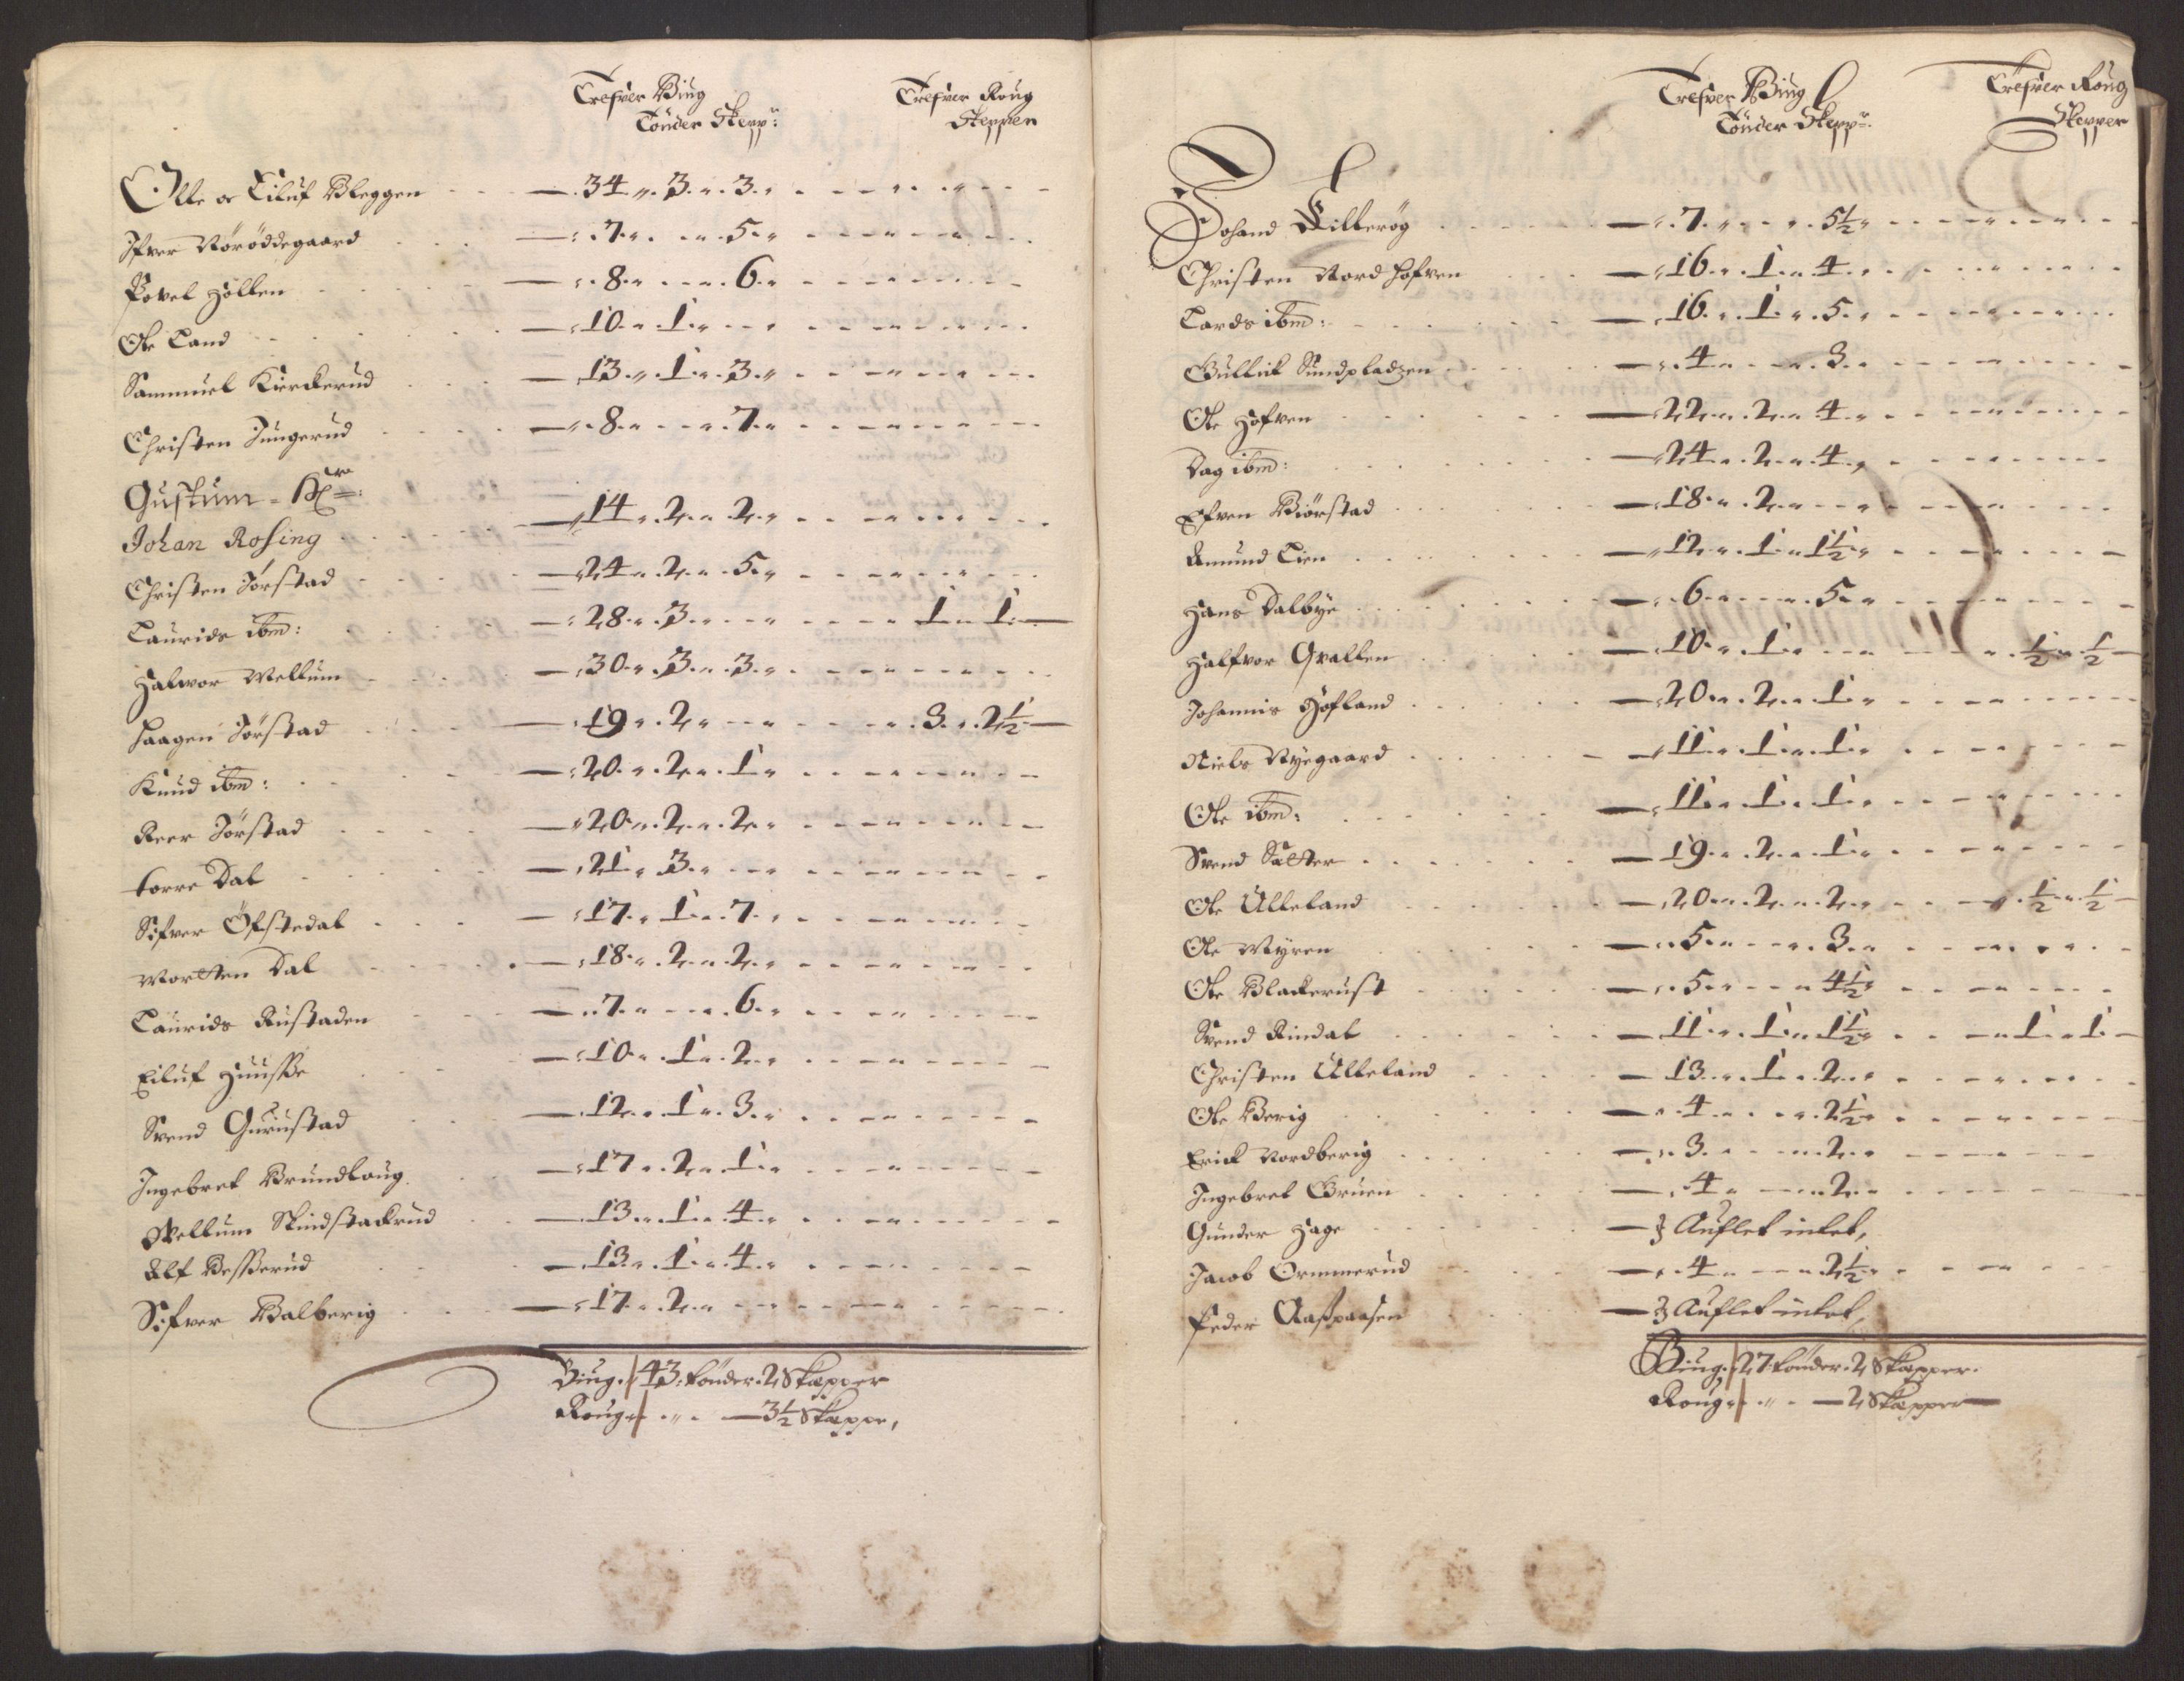 Trefver Biug
Tönder Skepp:
Trefver Roug
Skepper
Olle oc Eiluf Bleggen 34 3 3
Ifver Noröddegaard 7 5
Povel Hollen 8 6
Ole Land 10 1
Sammuel Kierckerud 13 1 3
Christen Jungerud 8 7
Gustum
Johan Rosing 14 2 2
Christen Jörstad 24 2 5
Laurids ibm: 28 3 1 1
Halvor Mellum 30 3 3
Haagen Jörstad 19 2 3 2½
Knud ibm: 20 2 1
Reer Jörstad 20 2 2
Torre Dal 21 3
Sifver Öfstedal 17 1 7
Mortten Dal 18 2 2
Laurids Rustaden 7 6
Eiluf Huusse 10 1 2
Svend Gurustad 12 1 3
Ingebret Brundlaug 17 2 1
Mellum Skindstackrud 13 1 4
Alf Besserud 13 1 4
Sifver Balberig 17 2
Biug 43 tönder 2 Skepper
Roug 3½ Skeppe,
Trefver Biug
Tönder Skepp:
Trefver Roug
Skepper
Johand Killerög 7 5½
Christen Nordhofven 16 1 4
Lards ibm: 16 1 5
Gullick Sundpladzen 4 3
Ole Hofven 22 2 4
Dag ibm: 24 2 4
Efven Biörstad 18 2
Amund Lien 12 1 1½
Hans Dalbye 6 5
Halfvor Qvallen 10 1 ½ ½
Johannis Hofland 20 2 1
Niels Nyegaard 11 1 1
Ole ibm: 11 1 1
Svend Sætter 19 2 1
Ole Ulleland 20 2 2 ½ ½
Ole Myren 5 3
Ole Blackerust 5 4½
Svend Rindal 11 1 1½ 1 1
Christen Ulleland 13 1 2
Ole Berig 4 2½
Erick Nordberig 3 2
Ingebret Gruen 4 2
Gunder Hage Auflet intet,
Jacob Ormmerud 4 2½
Peder Aaspaasen Auflet intet,
Biug 27 tönder 2 Skepper.
Roug 2 Skepper